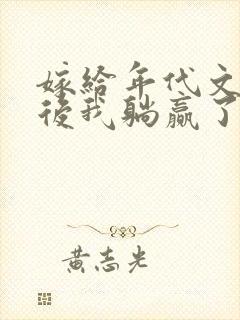 嫁給年代文
後我躺贏了
黃志光